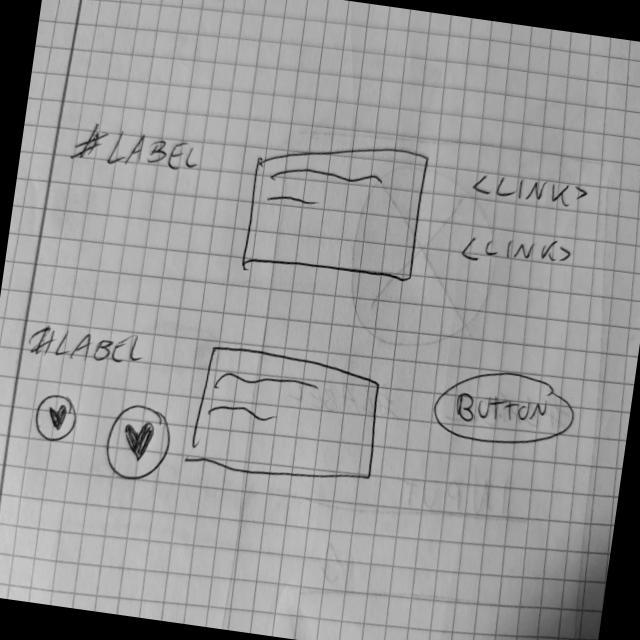 #LABEL
<LINK>
<LINK>
#LABEL
BUTTON